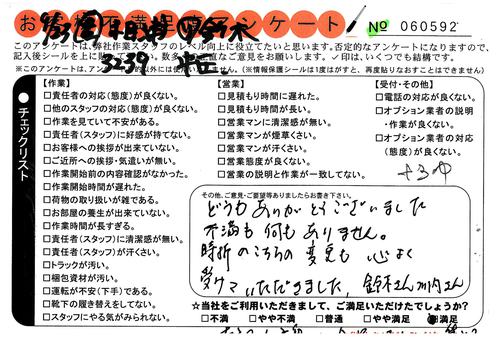 お客様不満足度アンケート
№ 060592
3239
このアンケートは、弊社作業スタッフのレベル向上に役立てたいと思います。否定的なアンケートになりますので、
記入後シールを上に
正直なご意見をお願いします。✓印は、いくつでも結構です。
※このアンケートは、
以外には使用い
ません。(※情報保護シールは1度はがすと、再度貼りなおすことはできません)
●チェックリスト
【作業】
□責任者の対応(態度)が良くない。
□他のスタッフの対応(態度)が良くない。
□作業を見ていて不安がある。
□責任者(スタッフ)に好感が持てない。
□お客様への挨拶が出来ていない。
□ご近所への挨拶・気遣いが無い。
□作業開始前の内容確認がなかった。
□作業開始時間が遅れた。
□荷物の取り扱いが雑である。
□お部屋の養生が出来ていない。
□作業時間が長すぎる。
□責任者(スタッフ)に清潔感が無い。
□責任者(スタッフ)が汗くさい。
□トラックが汚い。
□梱包資材が汚い。
□運転が不安(下手)である。
□靴下の履き替えをしてない。
□スタッフにやる気がみられない。
【営業】
□見積もり時間に遅れた。
□見積もり時間が長い。
□営業マンに清潔感が無い。
□営業マンが煙草くさい。
□営業マンが汗くさい。
□営業態度が良くない。
□営業の説明と作業が一致してない。
【受付・その他】
□電話の対応が良くない。
□オプション業者の説明
・作業が良くない。
□オプション業者の対応
(態度)が良くない。
その他、ご意見・ご要望等ありましたらお書き下さい。
どうもありがとうございました
不満も何もありません。
時折のこちらの変更も心よく
受けていただきました。鈴木さん川内さん
☆当社をご利用いただきまして、ご満足いただけたでしょうか?
□不満 □やや不満 □普通 □やや満足 ■満足